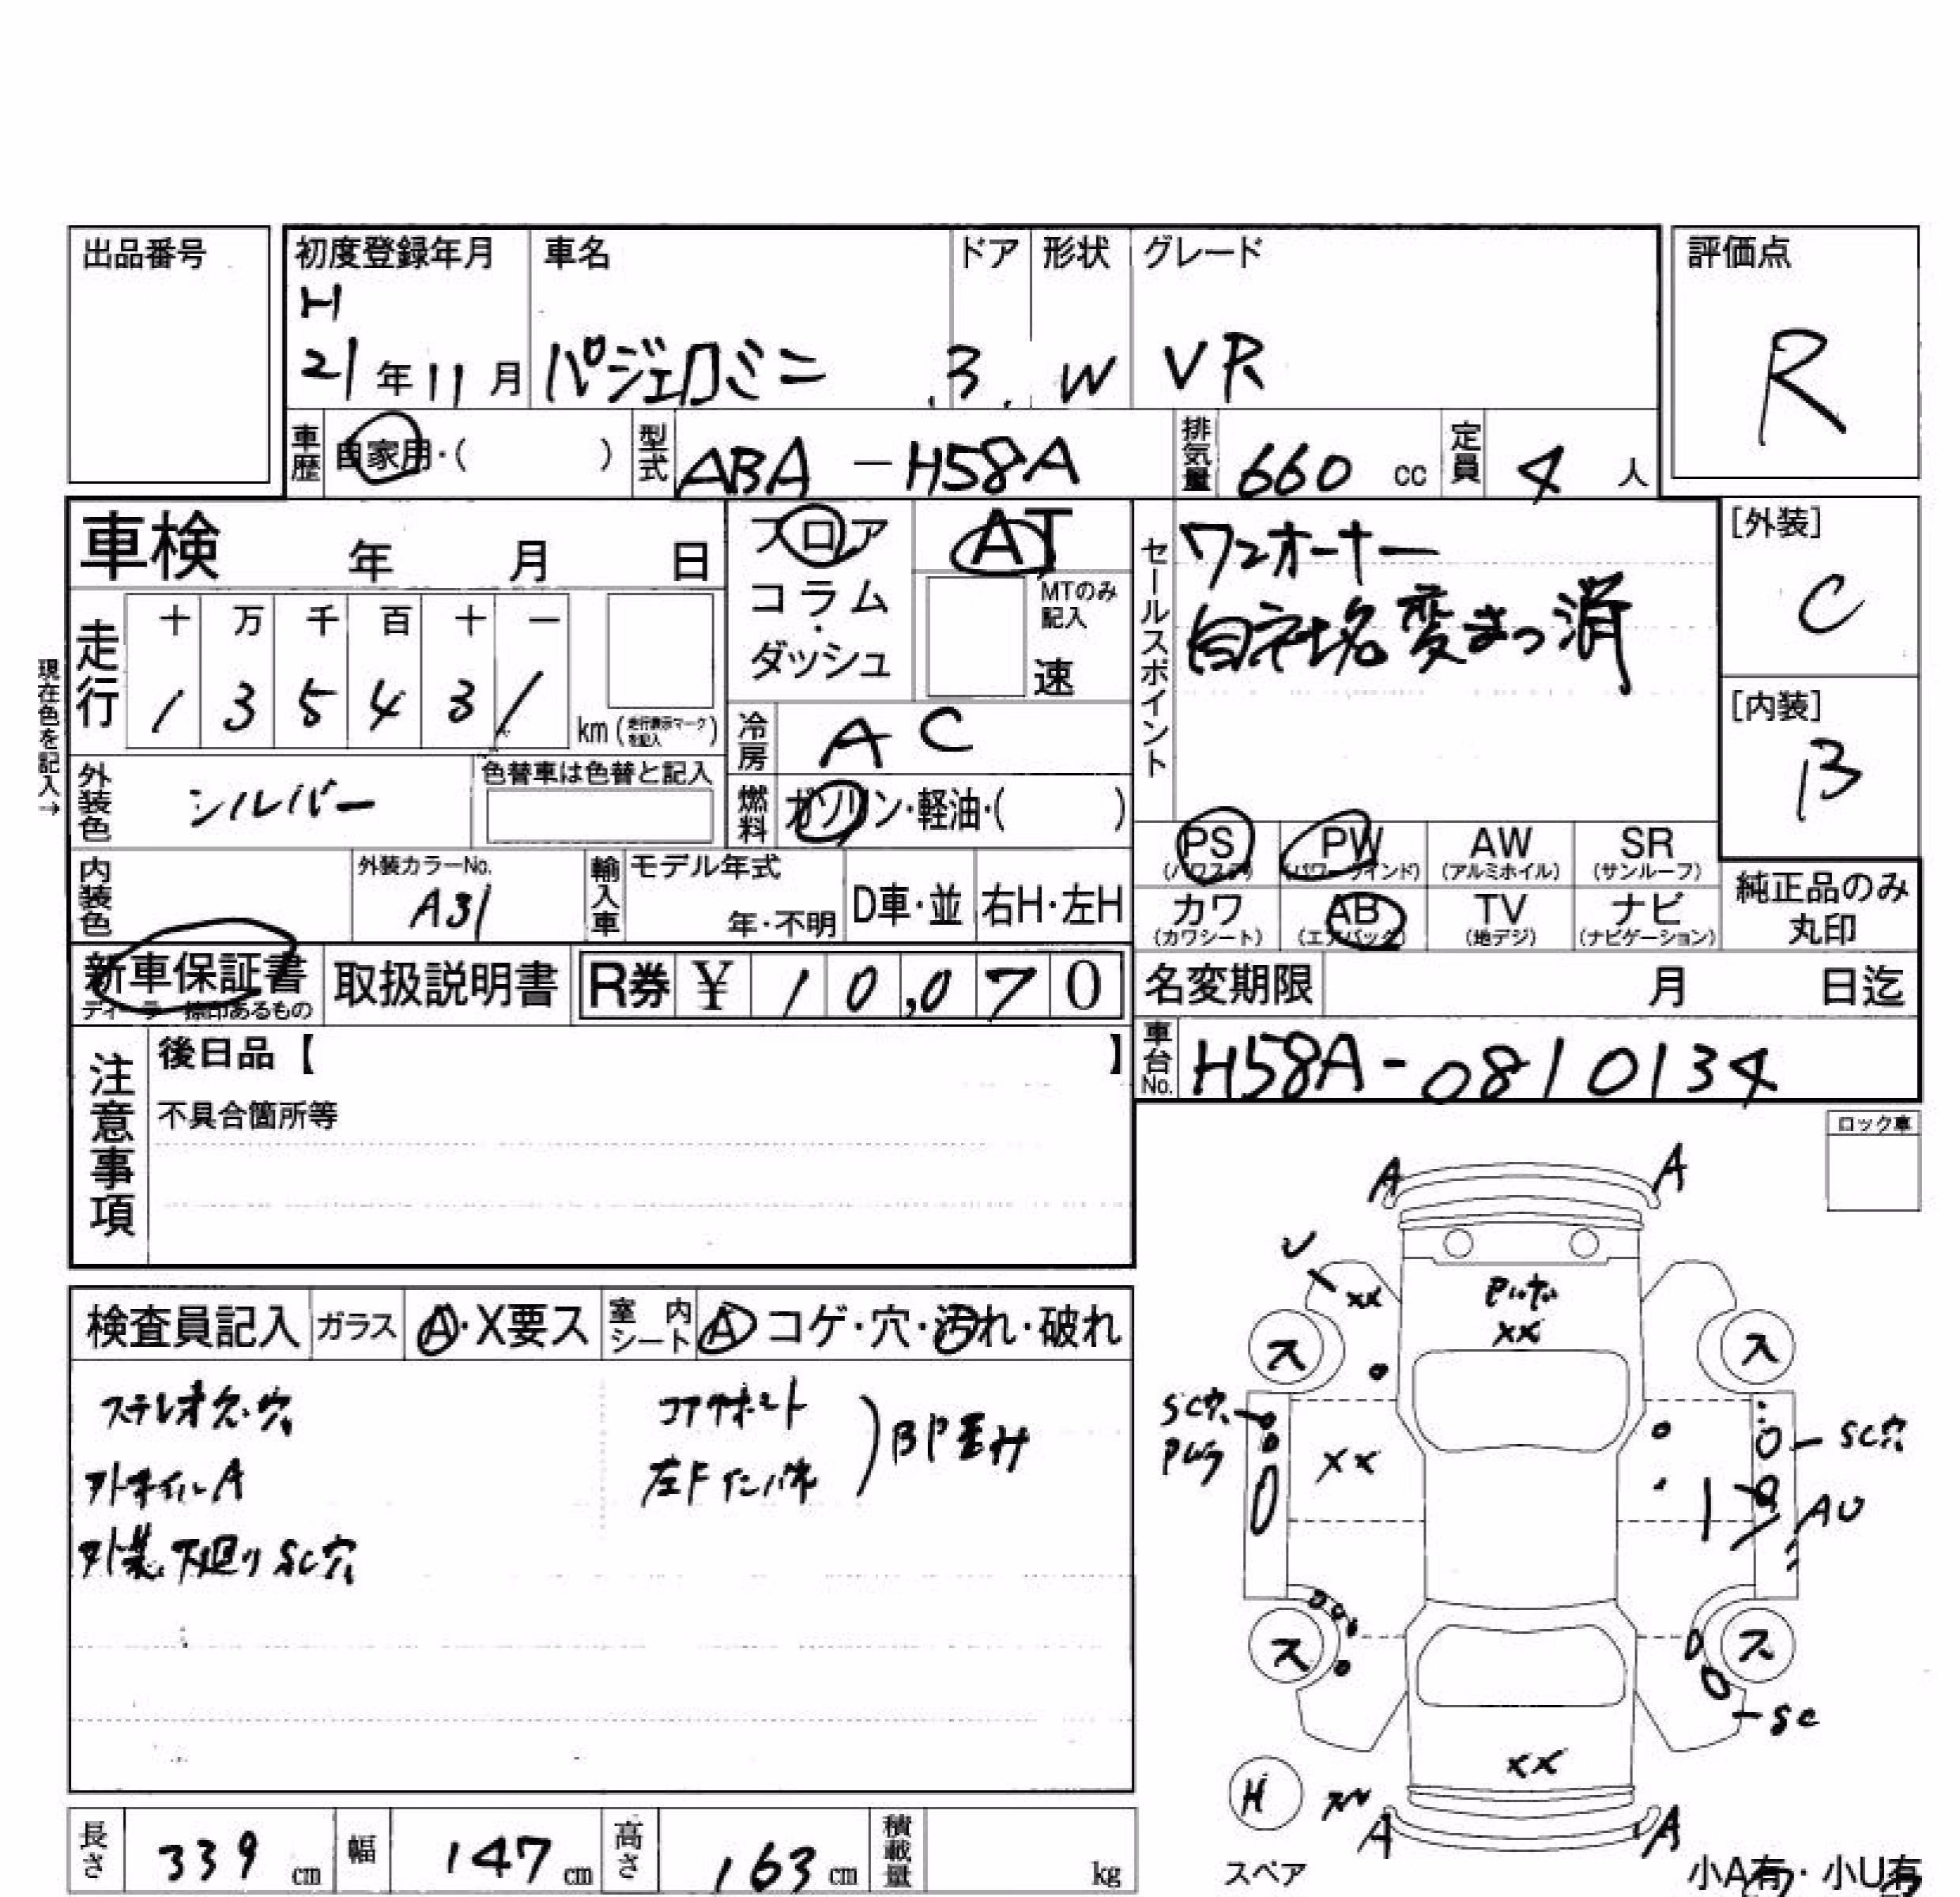 出品番号
初度登録年月 車名 ドア 形状 グレード 評価点
H
21年11月 パジェロミニ 3 W VR R
車歴 自家用・( ) 型式 ABA-H58A 排気量 660 cc 定員 4 人
車検 年 月 日
フロア AT
コラム・ダッシュ
MTのみ記入 速
セールスポイント
ワンオーナー
自社名変まっ消
[外装] C
[内装] B
現在色を記入→
走行 十 万 千 百 十 一
1 3 5 4 3 1 km (走行表示マークを記入)
冷房 AC
外装色 シルバー 色替車は色替と記入
燃料 ガソリン・軽油・( )
PS (パワステ) PW (パワーウインド) AW (アルミホイル) SR (サンルーフ)
カワ (カワシート) AB (エアバック) TV (地デジ) ナビ (ナビゲーション)
純正品のみ丸印
内装色 外装カラーNo. A31
輸入車 モデル年式 年・不明 D車・並 右H・左H
新車保証書 取扱説明書 R券 ¥ 10,070
名変期限 月 日迄
車台No. H58A-0810134
注意事項
後日品【 】
不具合箇所等
ロック車
検査員記入 ガラス A・X要ス 室内シート A コゲ・穴・汚れ・破れ
ステレオ欠・穴 コアサポート
左Fインパネ
外装、下廻り SC穴
A A
U
xx
xx
ス ス
SC穴 SC穴
xx
AU
ス ス
SC
xx
H
A A
スペア
小A有・小U有
長さ 339 cm 幅 147 cm 高さ 163 cm 積載量 kg